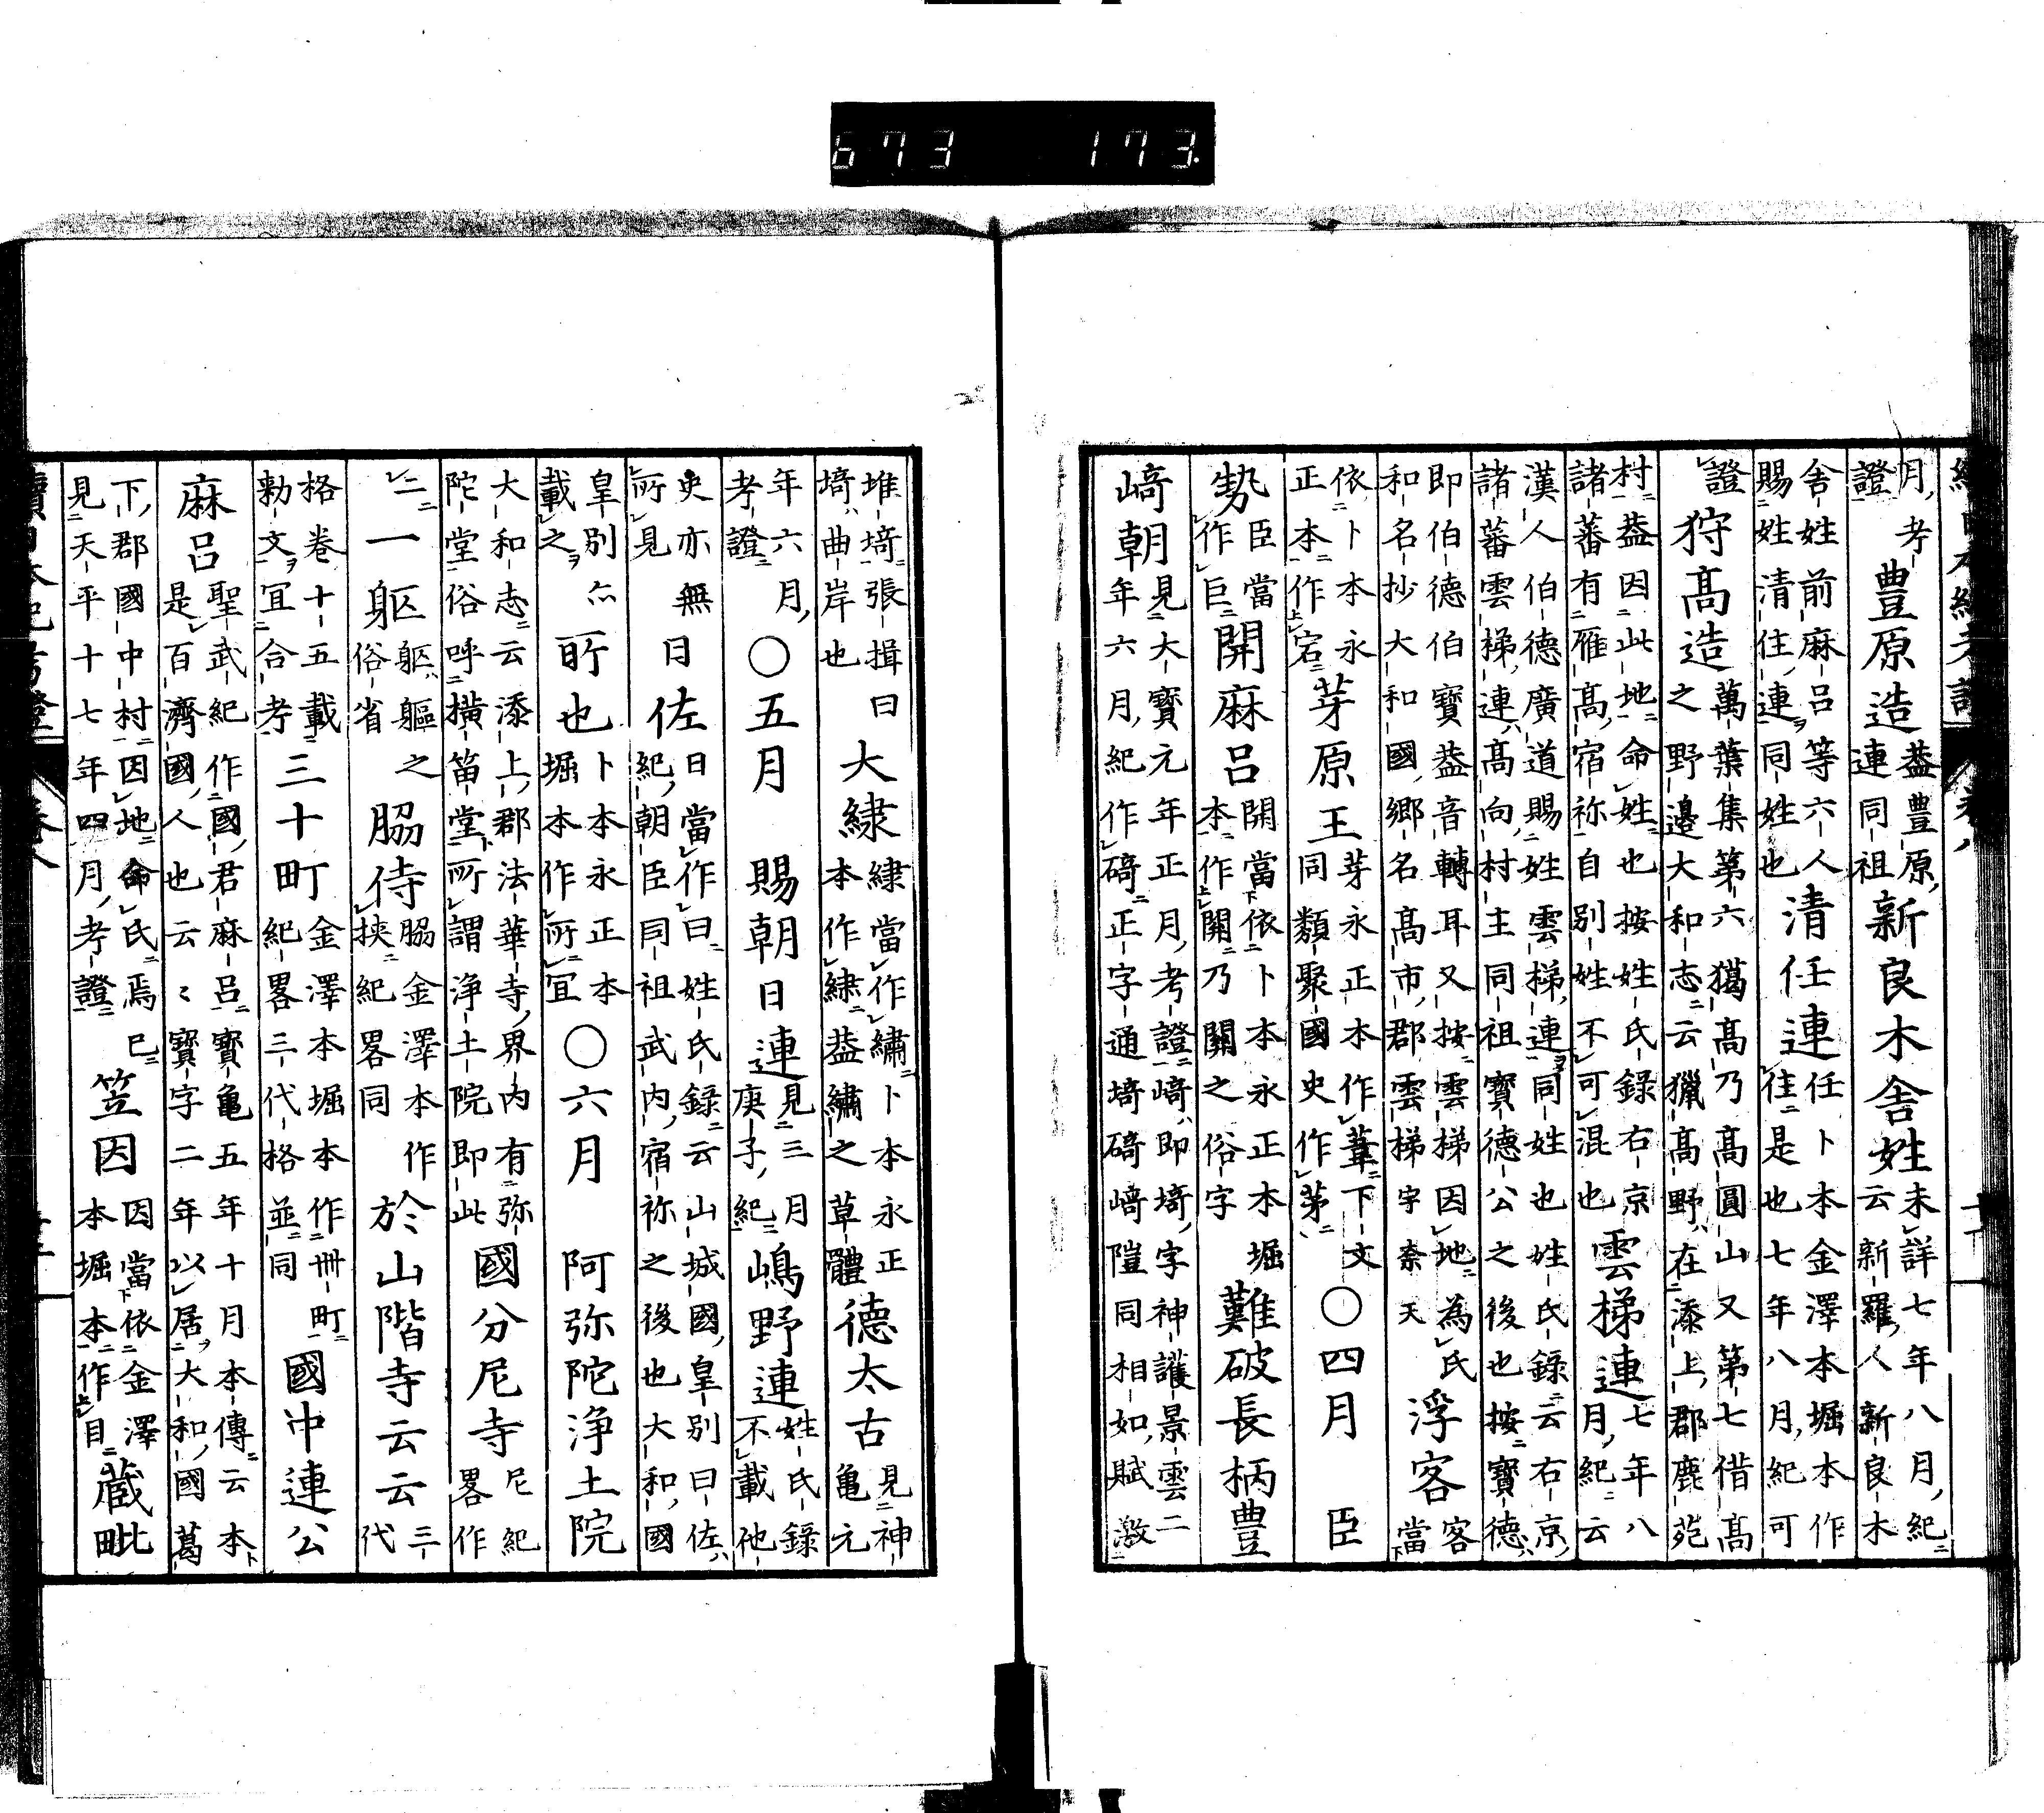 673 173.
月考
證
豊原造
蓋豊原
連同祖
新良木舎姓
未詳七年八月紀
云新羅人新良木
舎姓前麻呂等六人
賜姓清住連同姓也
清任連
任卜本金澤本堀本作
住是也七年八月紀可
證
狩高造
萬葉集第六獦高乃高圓山又第七借高
之野邊大和志云獵高野在添上郡鹿苑
村蓋因此地命姓也按姓氏録右京
諸蕃有雁高宿祢自別姓不可混也
雲梯連
七年八
月紀云
漢人伯德廣道賜姓雲梯連同姓也姓氏録云右京
諸蕃雲梯連高向村主同祖寳德公之後也按寳德
即伯德伯寳蓋音轉耳又按雲梯因地為氏
和名抄大和國郷名高市郡雲梯宇奈天
浮客
客
當
依卜本永
正本作宕
芽原王
芽永正本作葦下文
同類聚國史作茅
〇四月
臣
勢
臣當
作巨
開麻呂
開當依卜本永正本堀
本作關乃關之俗字
難破長柄豊
﨑朝
見大寳元年正月考證﨑即埼字神護景雲二
年六月紀作碕正字通埼碕﨑隑同相如賦激
堆埼張揖曰
埼曲岸也
大綠
綠當作繡卜本永正
本作綉蓋繡之草體
德太古
見神
亀元
年六月
考證
〇五月
賜朝日連
見三月
庚子紀
嶋野連
姓氏録
不載他
史亦無
所見
日佐
日當作曰姓氏録云山城國皇別曰佐
紀朝臣同祖武内宿祢之後也大和國
皇別亦
載之
一所也
卜本永正本
堀本作所宜
〇六月
阿弥陀浄土院
大和志云添上郡法華寺界内有弥
陀堂俗呼横笛堂所謂浄土院即此
國分尼寺
尼紀
畧作
二
一軀
軀軀之
俗省
脇侍
脇金澤本作
挟紀畧同
於山階寺云云
三
代
格卷十五載
勅文宜合考
三十町
金澤本堀本作卌町
紀畧三代格並同
國中連公
麻呂
聖武紀作國君麻呂寳亀五年十月本傳云本
是百濟國人也云々寳字二年以居大和國葛
下郡國中村因地命氏焉已
見天平十七年四月考證
笠因
因當依金澤
本堀本作目
蔵毗